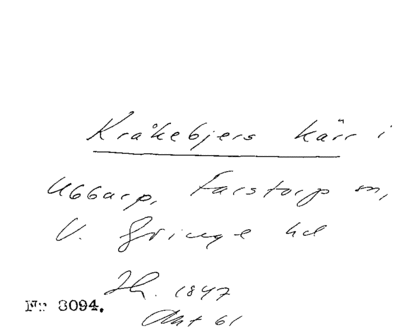 Kråkebjers kärr i
Ubbarp, Farstorp sn,
V. Göinge hd
Jh. 1847
Akt 61
Nr 3094.